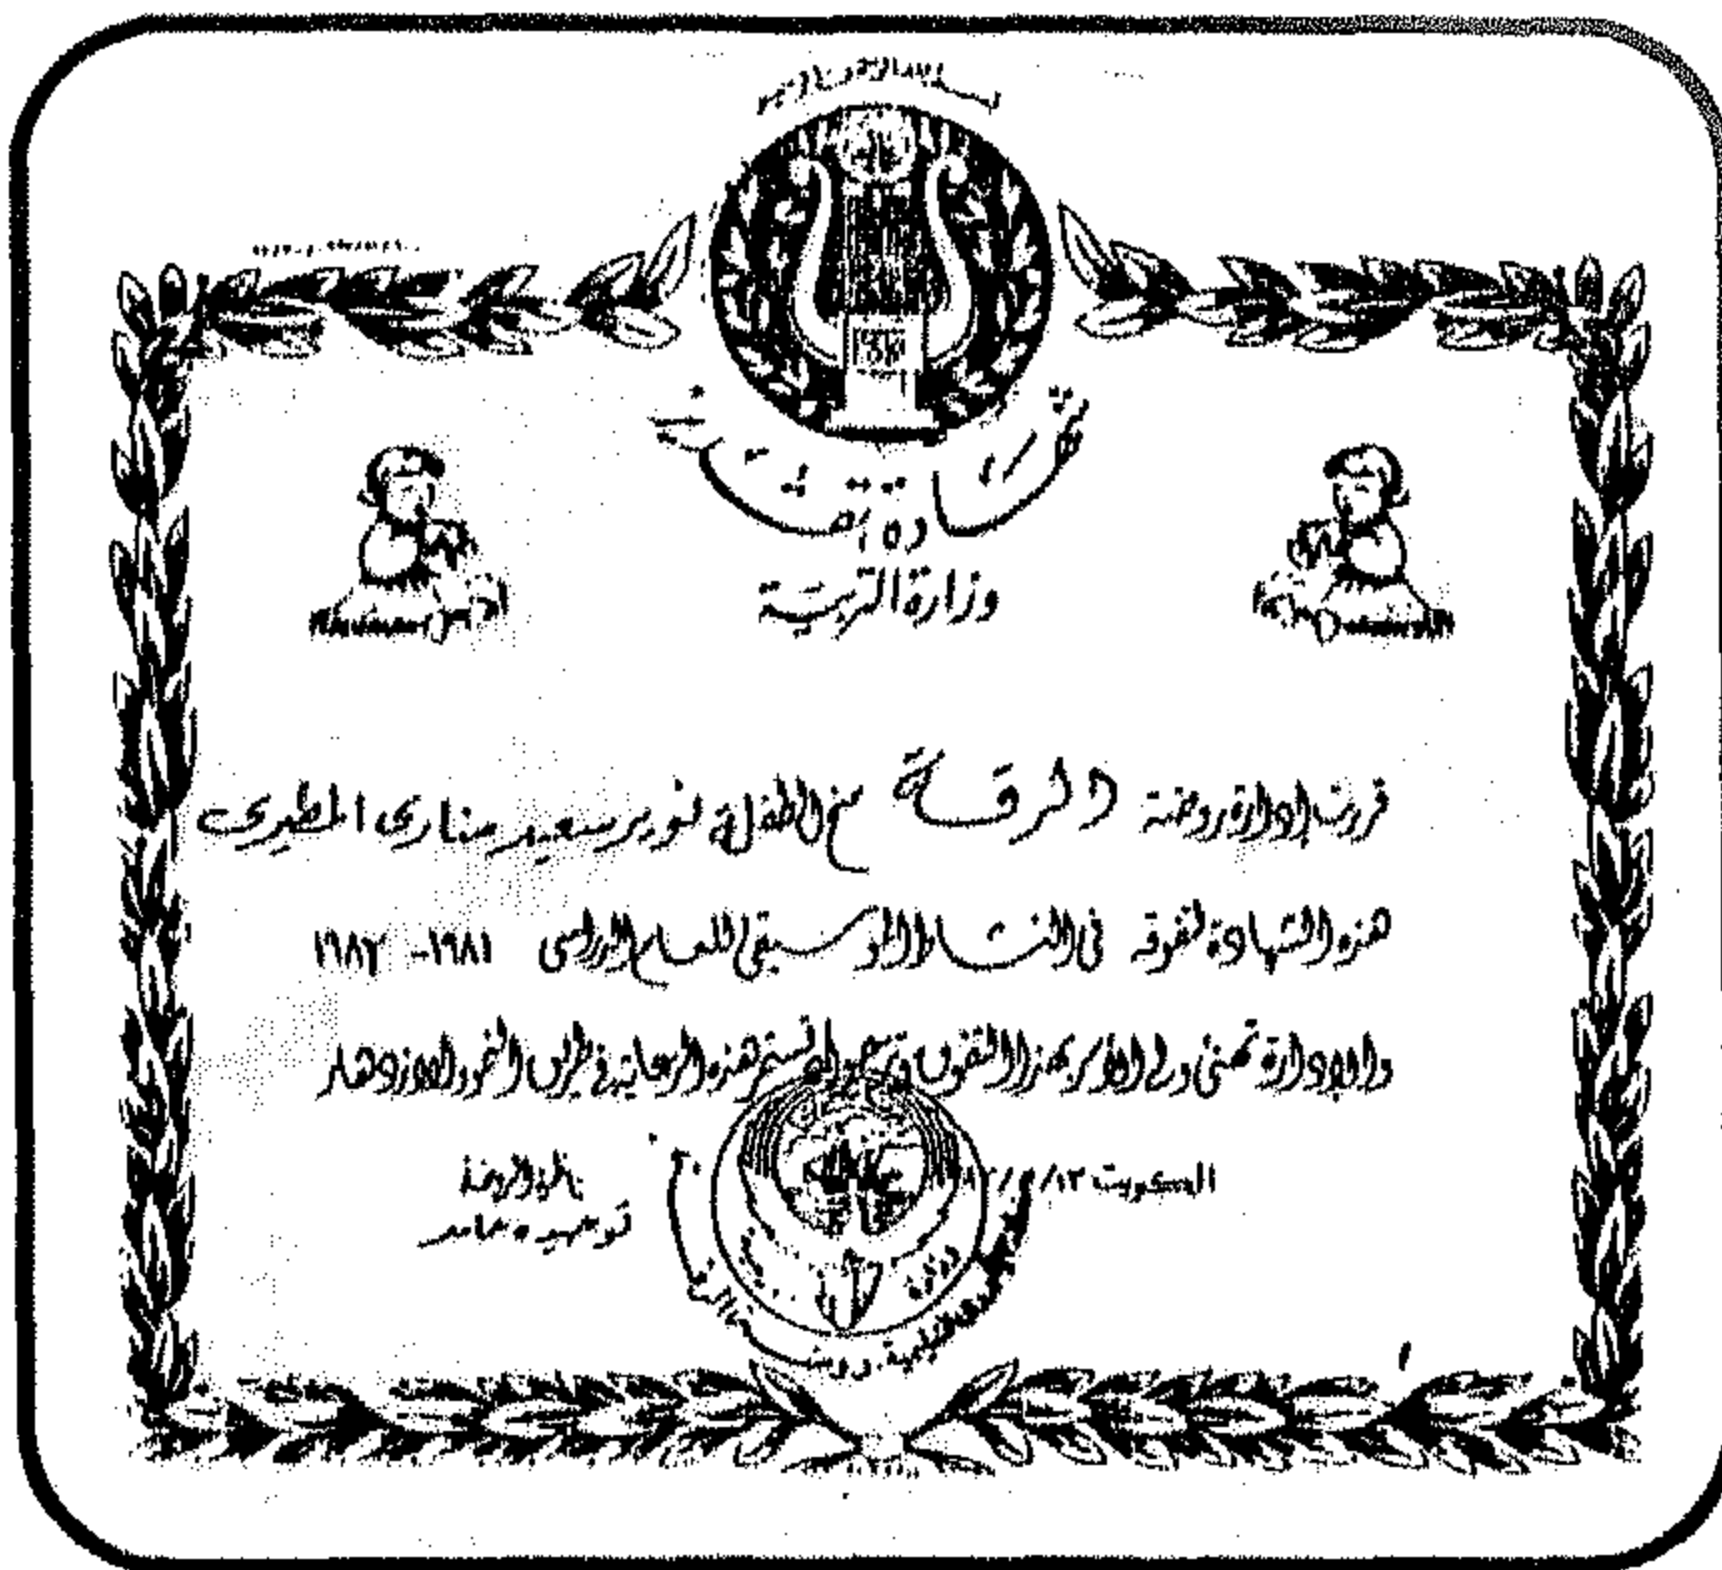 بسم الله الرحمن الرحيم
شهادة تقديرية
وزارة التربية
قررت إدارة روضة الرقة منح الطفلة نوير سعيد مناري المطيري
هذه الشهادة لتفوقه في النشاط الموسيقي للعام الدراسي ١٩٨١-١٩٨٢
والإدارة تهنئ ولي الأمر بهذا التفوق وترجو أن تستمر هذه الرعاية في طريق النمو والازدهار
الكويت ١٣/
ناظرة الروضة
توحيده حامد
وزارة التربية